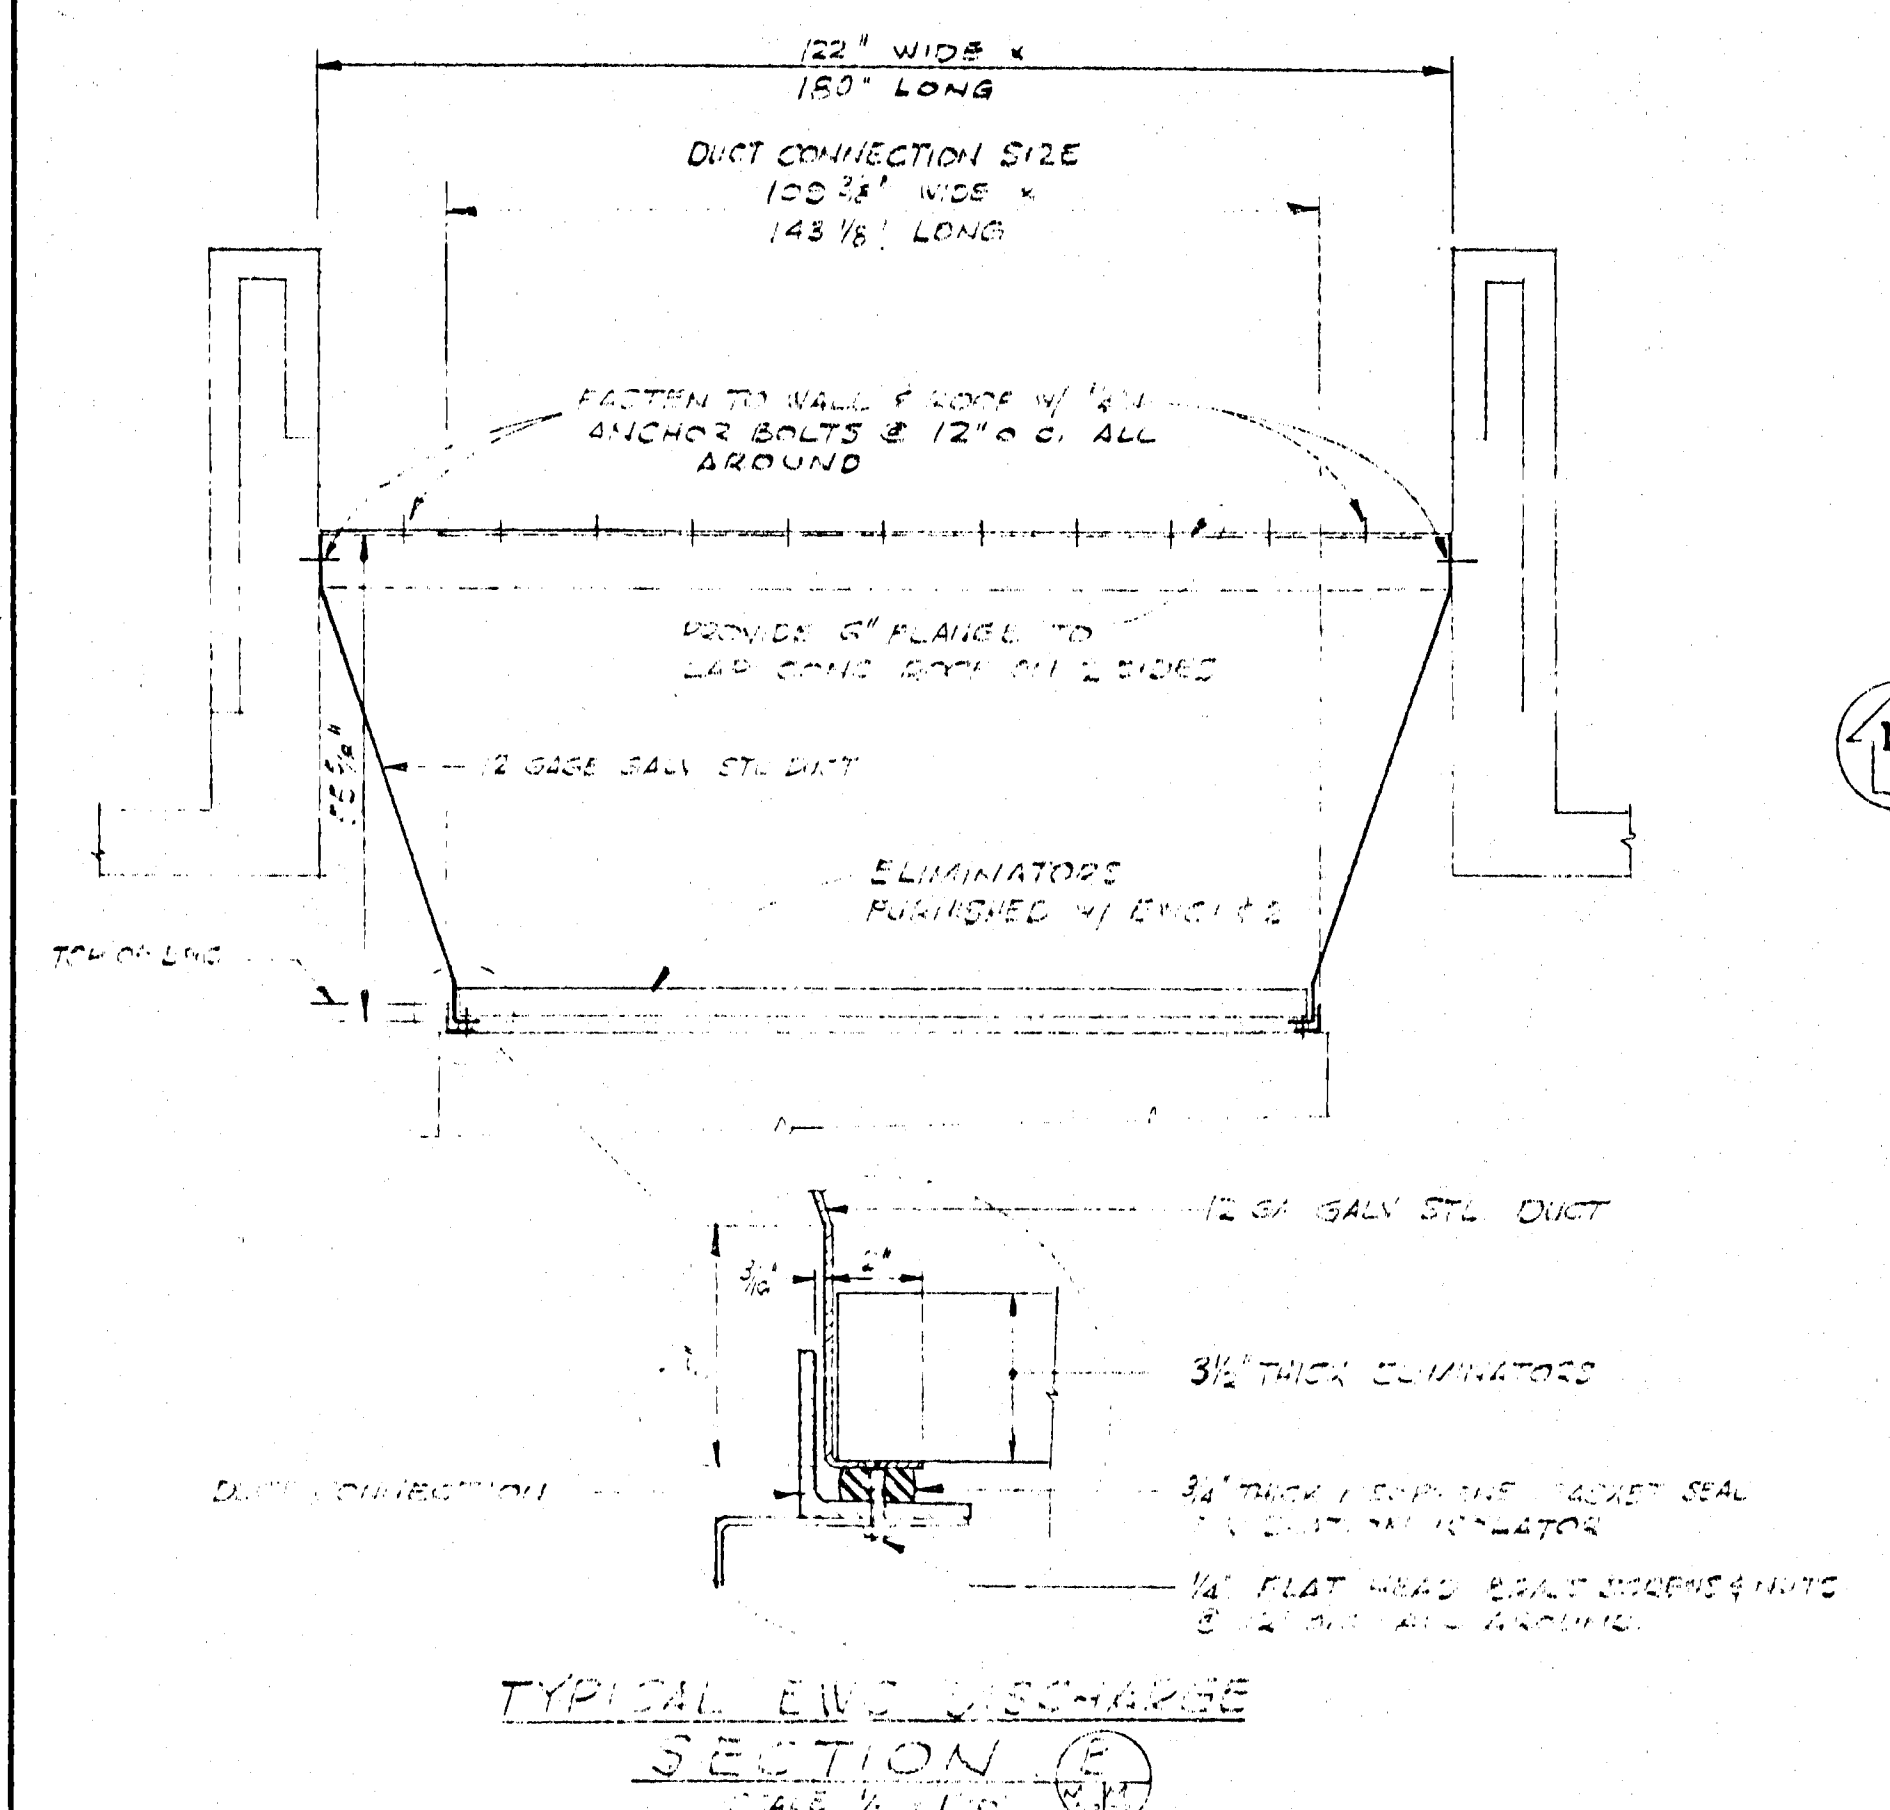 122" WIDE x
180" LONG
DUCT CONNECTION SIZE
109 3/8" WIDE x
143 1/8" LONG
FASTEN TO WALL & ROOF W/
ANCHOR BOLTS @ 12" O.C. ALL
AROUND
PROVIDE 6" FLANGE TO
LAP CONC ROOF ON 2 SIDES
12 GAGE GALV STL DUCT
ELIMINATORS
FURNISHED W/ EWC 1 & 2
TOP OF EWC
12 GA GALV STL. DUCT
3/16"
2"
3 1/2" THICK ELIMINATORS
DUCT CONNECTION
3/4" THICK NEOPRENE GASKET SEAL
ISOLATOR
1/4" FLAT HEAD SCREWS & NUTS
@ 12" O.C. ALL AROUND.
TYPICAL EWC DISCHARGE
SECTION E
SCALE